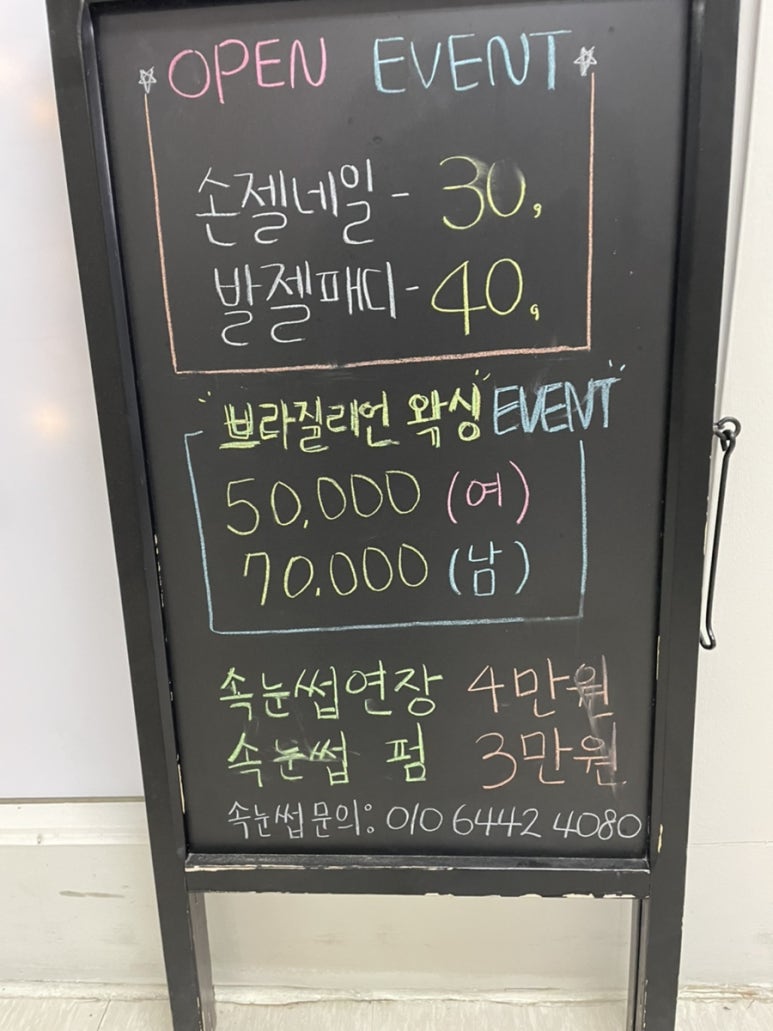 OPEN EVENT
손젤네일 - 30,
발젤패디 - 40,
브라질리언 왁싱 EVENT
50,000 (여)
70,000 (남)
속눈썹연장 4만원
속눈썹 펌 3만원
속눈썹문의: 010 6442 4080